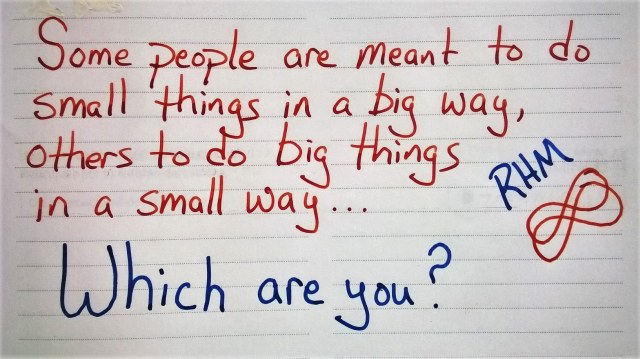 Some people are meant to do
small things in a big way,
others to do big things
in a small way...
RHM
Which are you?